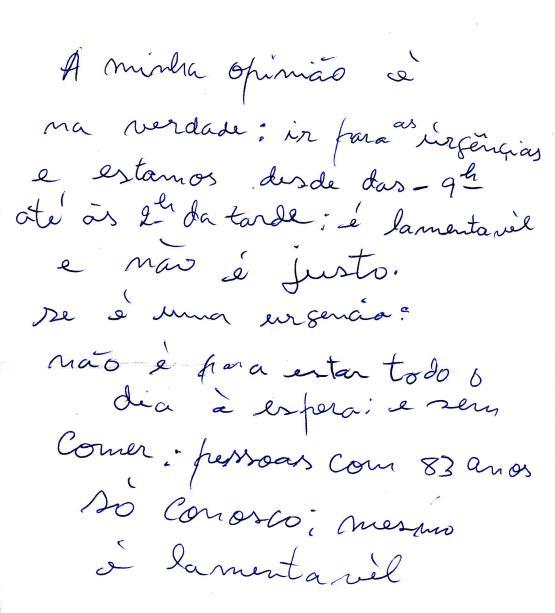 A minha opinião è
na verdade: ir para as urgências
e estamos desde das - 9h
até às 2h da tarde; é lamentavèl
e não é justo.
se è uma urgencia:
não è para estar todo o
dia à espera; e sem
Comer: pessoas com 83 anos
sò conosco; mesmo
è lamentavèl